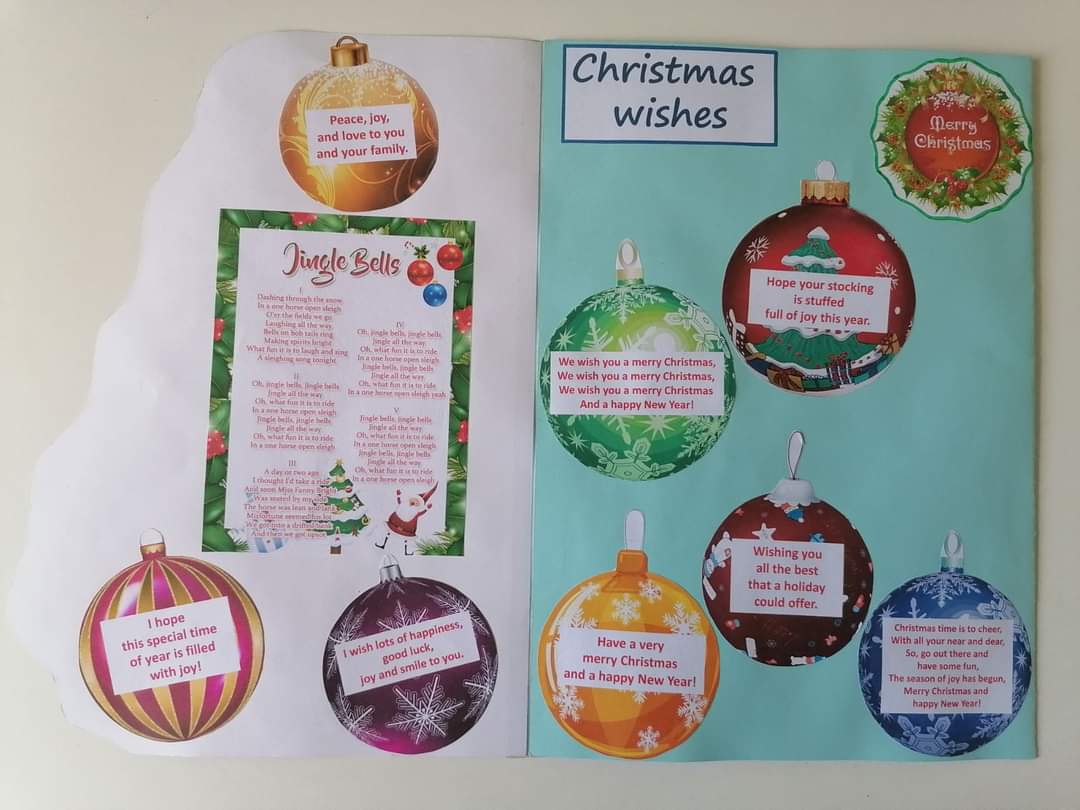 Peace, joy,
and love to you
and your family.
Jingle Bells
I
Dashing through the snow
In a one horse open sleigh
O'er the fields we go
Laughing all the way
Bells on bob tails ring
Making spirits bright
What fun it is to laugh and sing
A sleighing song tonight
II
Oh, jingle bells, jingle bells
Jingle all the way
Oh, what fun it is to ride
In a one horse open sleigh
Jingle bells, jingle bells
Jingle all the way
Oh, what fun it is to ride
In a one horse open sleigh
III
A day or two ago
I thought I'd take a ride
And soon Miss Fanny Bright
Was seated by my side
The horse was lean and lank
Misfortune seemed his lot
We got into a drifted bank
And then we got upsot
IV
Oh, jingle bells, jingle bells
Jingle all the way
Oh, what fun it is to ride
In a one horse open sleigh
Jingle bells, jingle bells
Jingle all the way
Oh, what fun it is to ride
In a one horse open sleigh yeah
V
Jingle bells, jingle bells
Jingle all the way
Oh, what fun it is to ride
In a one horse open sleigh
Jingle bells, jingle bells
Jingle all the way
Oh, what fun it is to ride
In a one horse open sleigh
I hope
this special time
of year is filled
with joy!
I wish lots of happiness,
good luck,
joy and smile to you.
Christmas
wishes
Merry
Christmas
Hope your stocking
is stuffed
full of joy this year.
We wish you a merry Christmas,
We wish you a merry Christmas,
We wish you a merry Christmas
And a happy New Year!
Wishing you
all the best
that a holiday
could offer.
Have a very
merry Christmas
and a happy New Year!
Christmas time is to cheer,
With all your near and dear,
So, go out there and
have some fun,
The season of joy has begun,
Merry Christmas and
happy New Year!